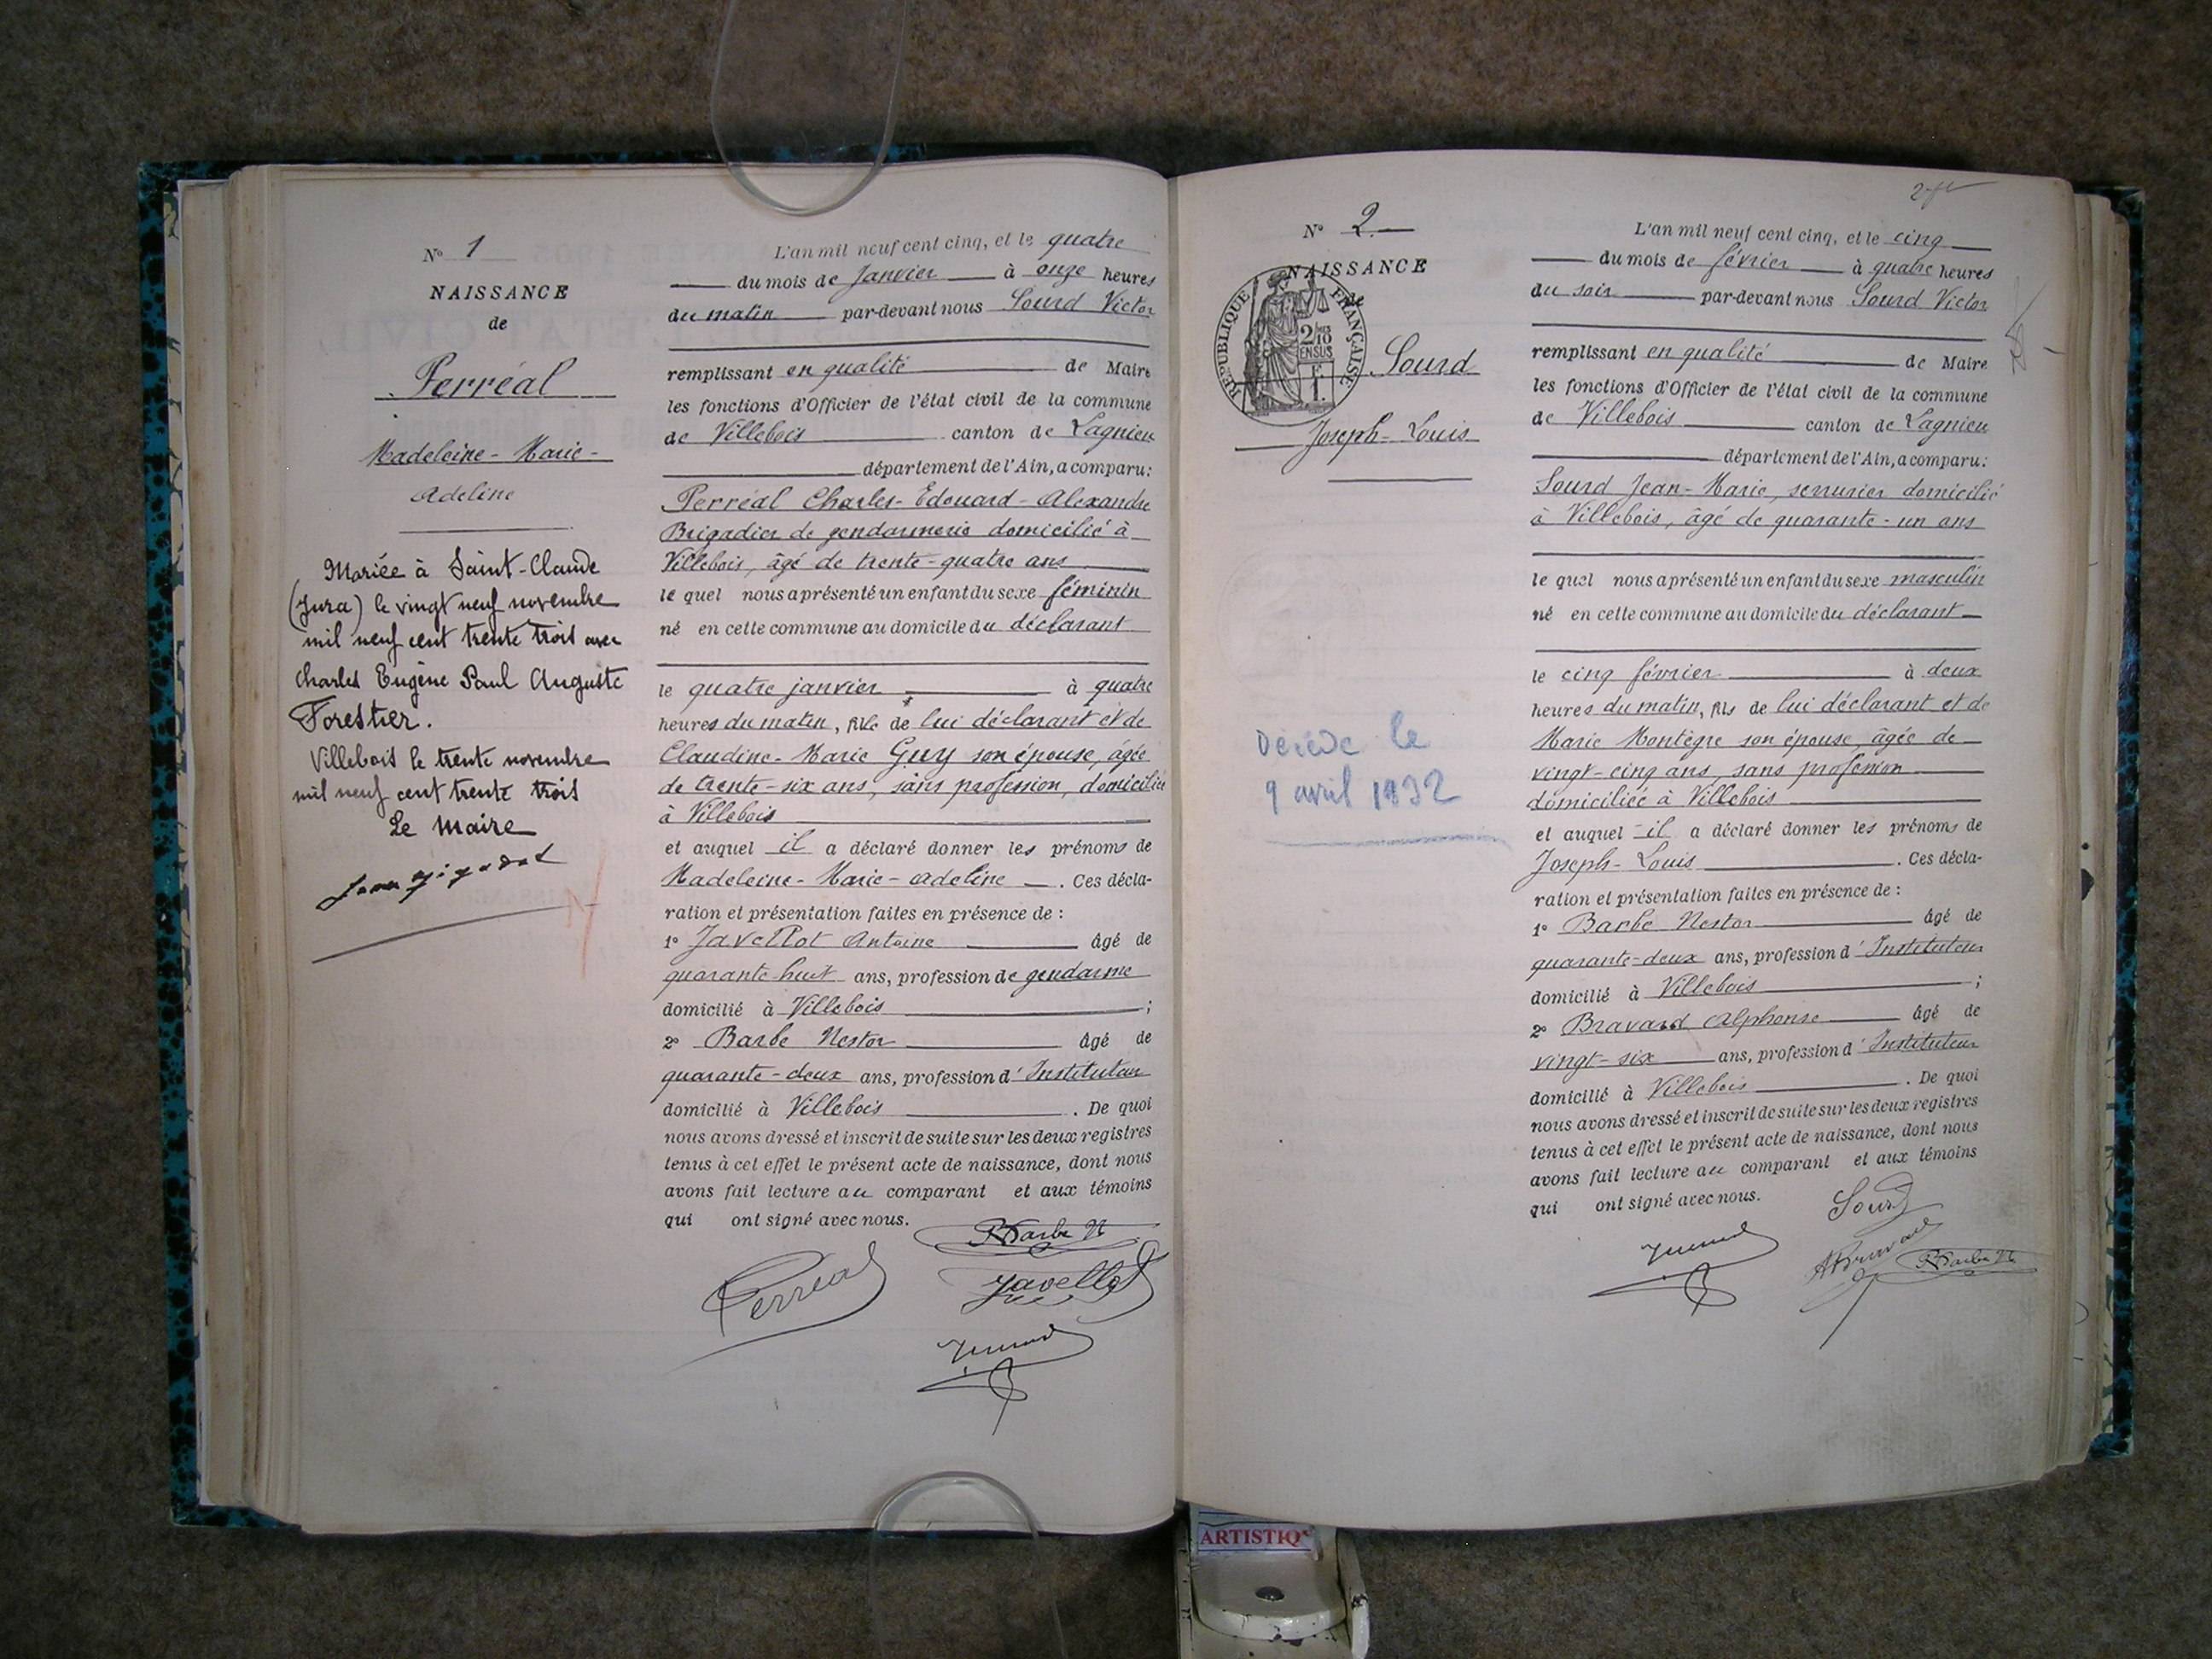 N° 1
NAISSANCE
de
Perréal
Madeleine-Marie-
Adeline
Mariée à Saint-Claude
(Jura) le vingt neuf novembre
mil neuf cent trente trois avec
Charles Eugène Paul Auguste
Forestier.
Villebois le trente novembre
mil neuf cent trente trois
Le Maire
L'an mil neuf cent cinq, et le quatre
du mois de Janvier à onze heures
du matin par-devant nous Sourd Victor
remplissant en qualité de Maire
les fonctions d'Officier de l'état civil de la commune
de Villebois canton de Lagnieu
département de l'Ain, a comparu:
Perréal Charles-Edouard-Alexandre
Brigadier de gendarmerie domicilié à
Villebois, âgé de trente-quatre ans
le quel nous a présenté un enfant du sexe féminin
né en cette commune au domicile du déclarant
le quatre janvier à quatre
heures du matin, fille de lui déclarant et de
Claudine-Marie Guy son épouse, âgée
de trente-six ans, sans profession, domiciliée
à Villebois
et auquel il a déclaré donner les prénoms de
Madeleine-Marie-Adeline. Ces décla-
ration et présentation faites en présence de :
1° Javellot Antoine âgé de
quarante-huit ans, profession de gendarme
domicilié à Villebois ;
2° Barbe Nestor âgé de
quarante-deux ans, profession d'Instituteur
domicilié à Villebois. De quoi
nous avons dressé et inscrit de suite sur les deux registres
tenus à cet effet le présent acte de naissance, dont nous
avons fait lecture au comparant et aux témoins
qui ont signé avec nous.
Barbe N
Perréal
Javellot
N° 2
NAISSANCE
de
RÉPUBLIQUE FRANÇAISE
2/10 EN SUS
1 F.
Sourd
Joseph-Louis
Décédé le
9 avril 1932
L'an mil neuf cent cinq, et le cinq
du mois de février à quatre heures
du soir par-devant nous Sourd Victor
remplissant en qualité de Maire
les fonctions d'Officier de l'état civil de la commune
de Villebois canton de Lagnieu
département de l'Ain, a comparu:
Sourd Jean-Marie, serrurier domicilié
à Villebois, âgé de quarante-un ans
le quel nous a présenté un enfant du sexe masculin
né en cette commune au domicile du déclarant
le cinq février à deux
heures du matin, fils de lui déclarant et de
Marie Montègre son épouse, âgée de
vingt-cinq ans, sans profession
domiciliée à Villebois
et auquel il a déclaré donner les prénoms de
Joseph-Louis. Ces décla-
ration et présentation faites en présence de :
1° Barbe Nestor âgé de
quarante-deux ans, profession d'Instituteur
domicilié à Villebois ;
2° Bravard Alphonse âgé de
vingt-six ans, profession d'Instituteur
domicilié à Villebois. De quoi
nous avons dressé et inscrit de suite sur les deux registres
tenus à cet effet le présent acte de naissance, dont nous
avons fait lecture au comparant et aux témoins
qui ont signé avec nous.
Sourd
ABravard
Barbe N
ARTISTIQ